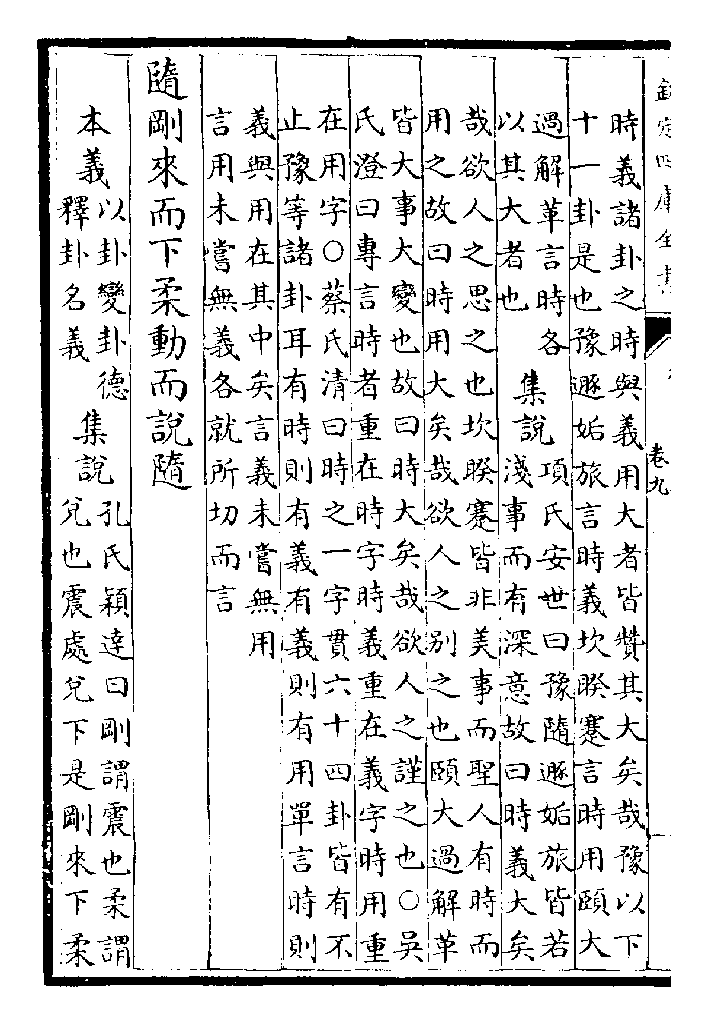 欽定四庫全書
卷九
時義諸卦之時與義用大者皆贊其大矣哉豫以下
十一卦是也豫遯姤旅言時義坎睽蹇言時用頤大
過解革言時各
以其大者也
集說
項氏安世曰豫隨遯姤旅皆若
淺事而有深意故曰時義大矣
哉欲人之思之也坎睽蹇皆非美事而聖人有時而
用之故曰時用大矣哉欲人之别之也頤大過解革
皆大事大變也故曰時大矣哉欲人之謹之也○吳
氏澄曰專言時者重在時字時義重在義字時用重
在用字○蔡氏清曰時之一字貫六十四卦皆有不
止豫等諸卦耳有時則有義有義則有用單言時則
義與用在其中矣言義未嘗無用
言用未嘗無義各就所切而言
隨剛來而下柔動而說隨
本義
以卦變卦德
釋卦名義
集說
孔氏穎達曰剛謂震也柔謂
兌也震處兌下是剛來下柔